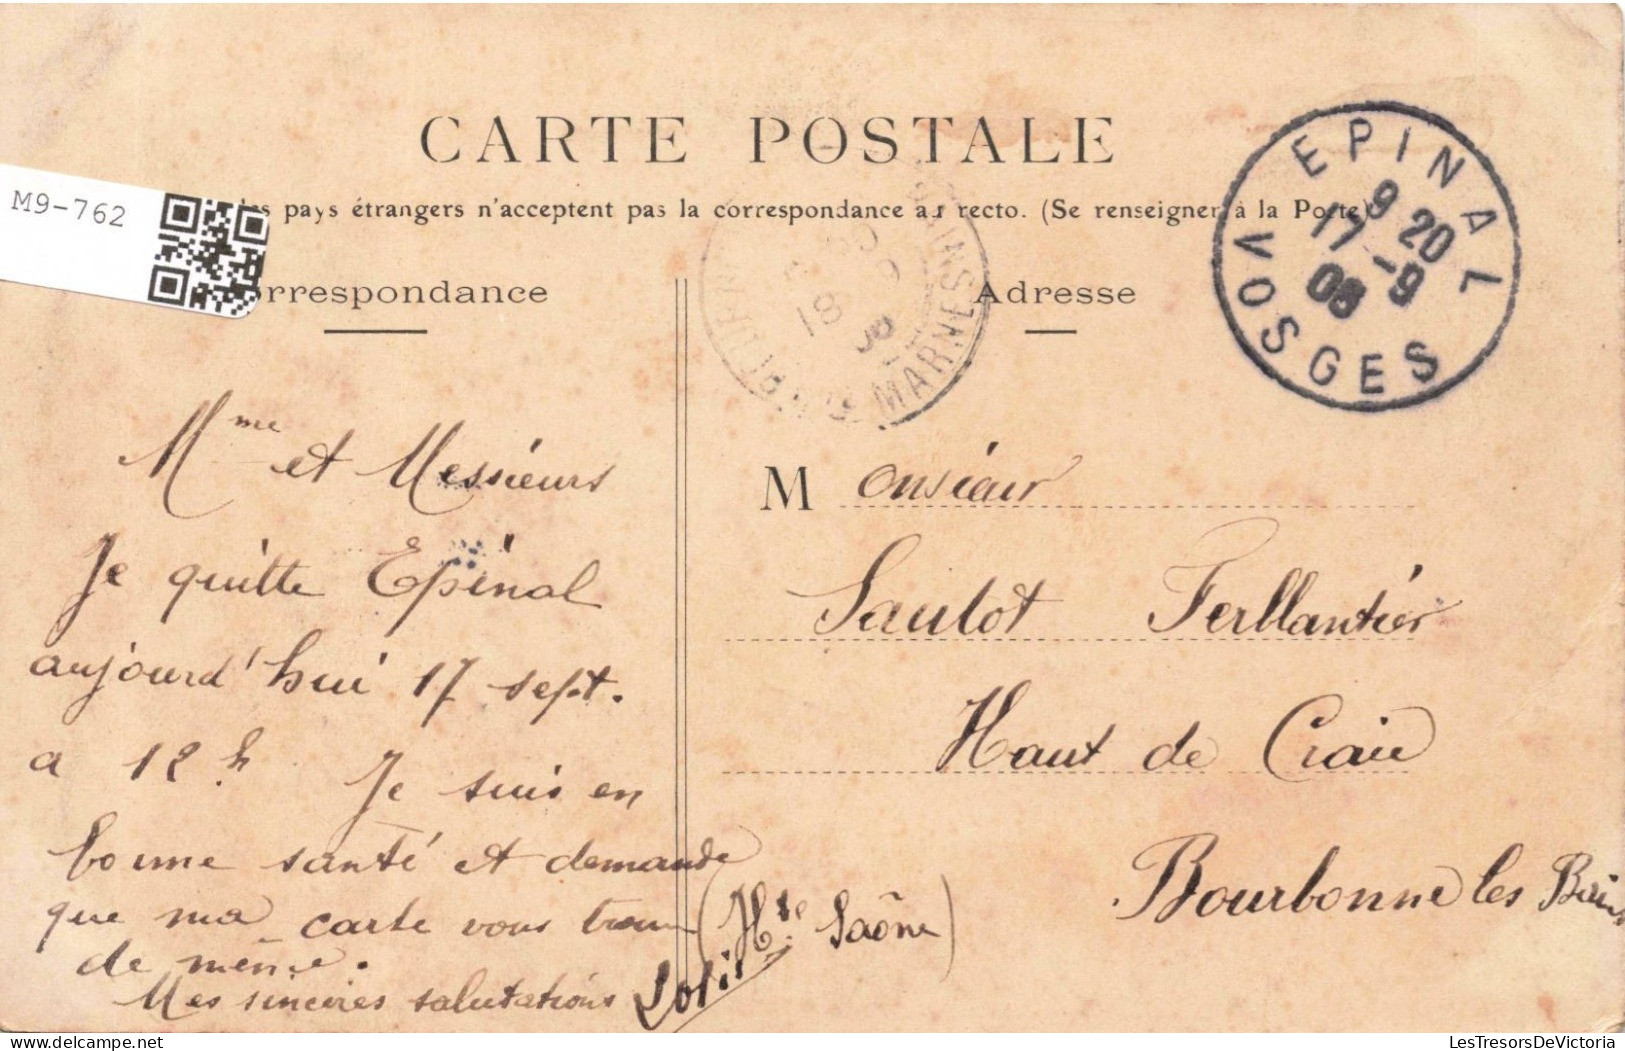 CARTE POSTALE
M9-762
les pays étrangers n'acceptent pas la correspondance au recto. (Se renseigner à la Poste)
orrespondance
Adresse
EPINAL
9 20
17-9
08
VOSGES
BAINS
18
MARNE
Mme et Messieurs
Je quitte Epinal
aujourd'hui 17 sept.
a 12 h Je suis en
bonne santé et demande
que ma carte vous trouve
de même.
Mes sincères salutations
Monsieur
Saulot Ferblantier
Haut de
Bourbonne les Bains
(Hte Saône)
LesTresorsDeVictoria
© www.delcampe.net